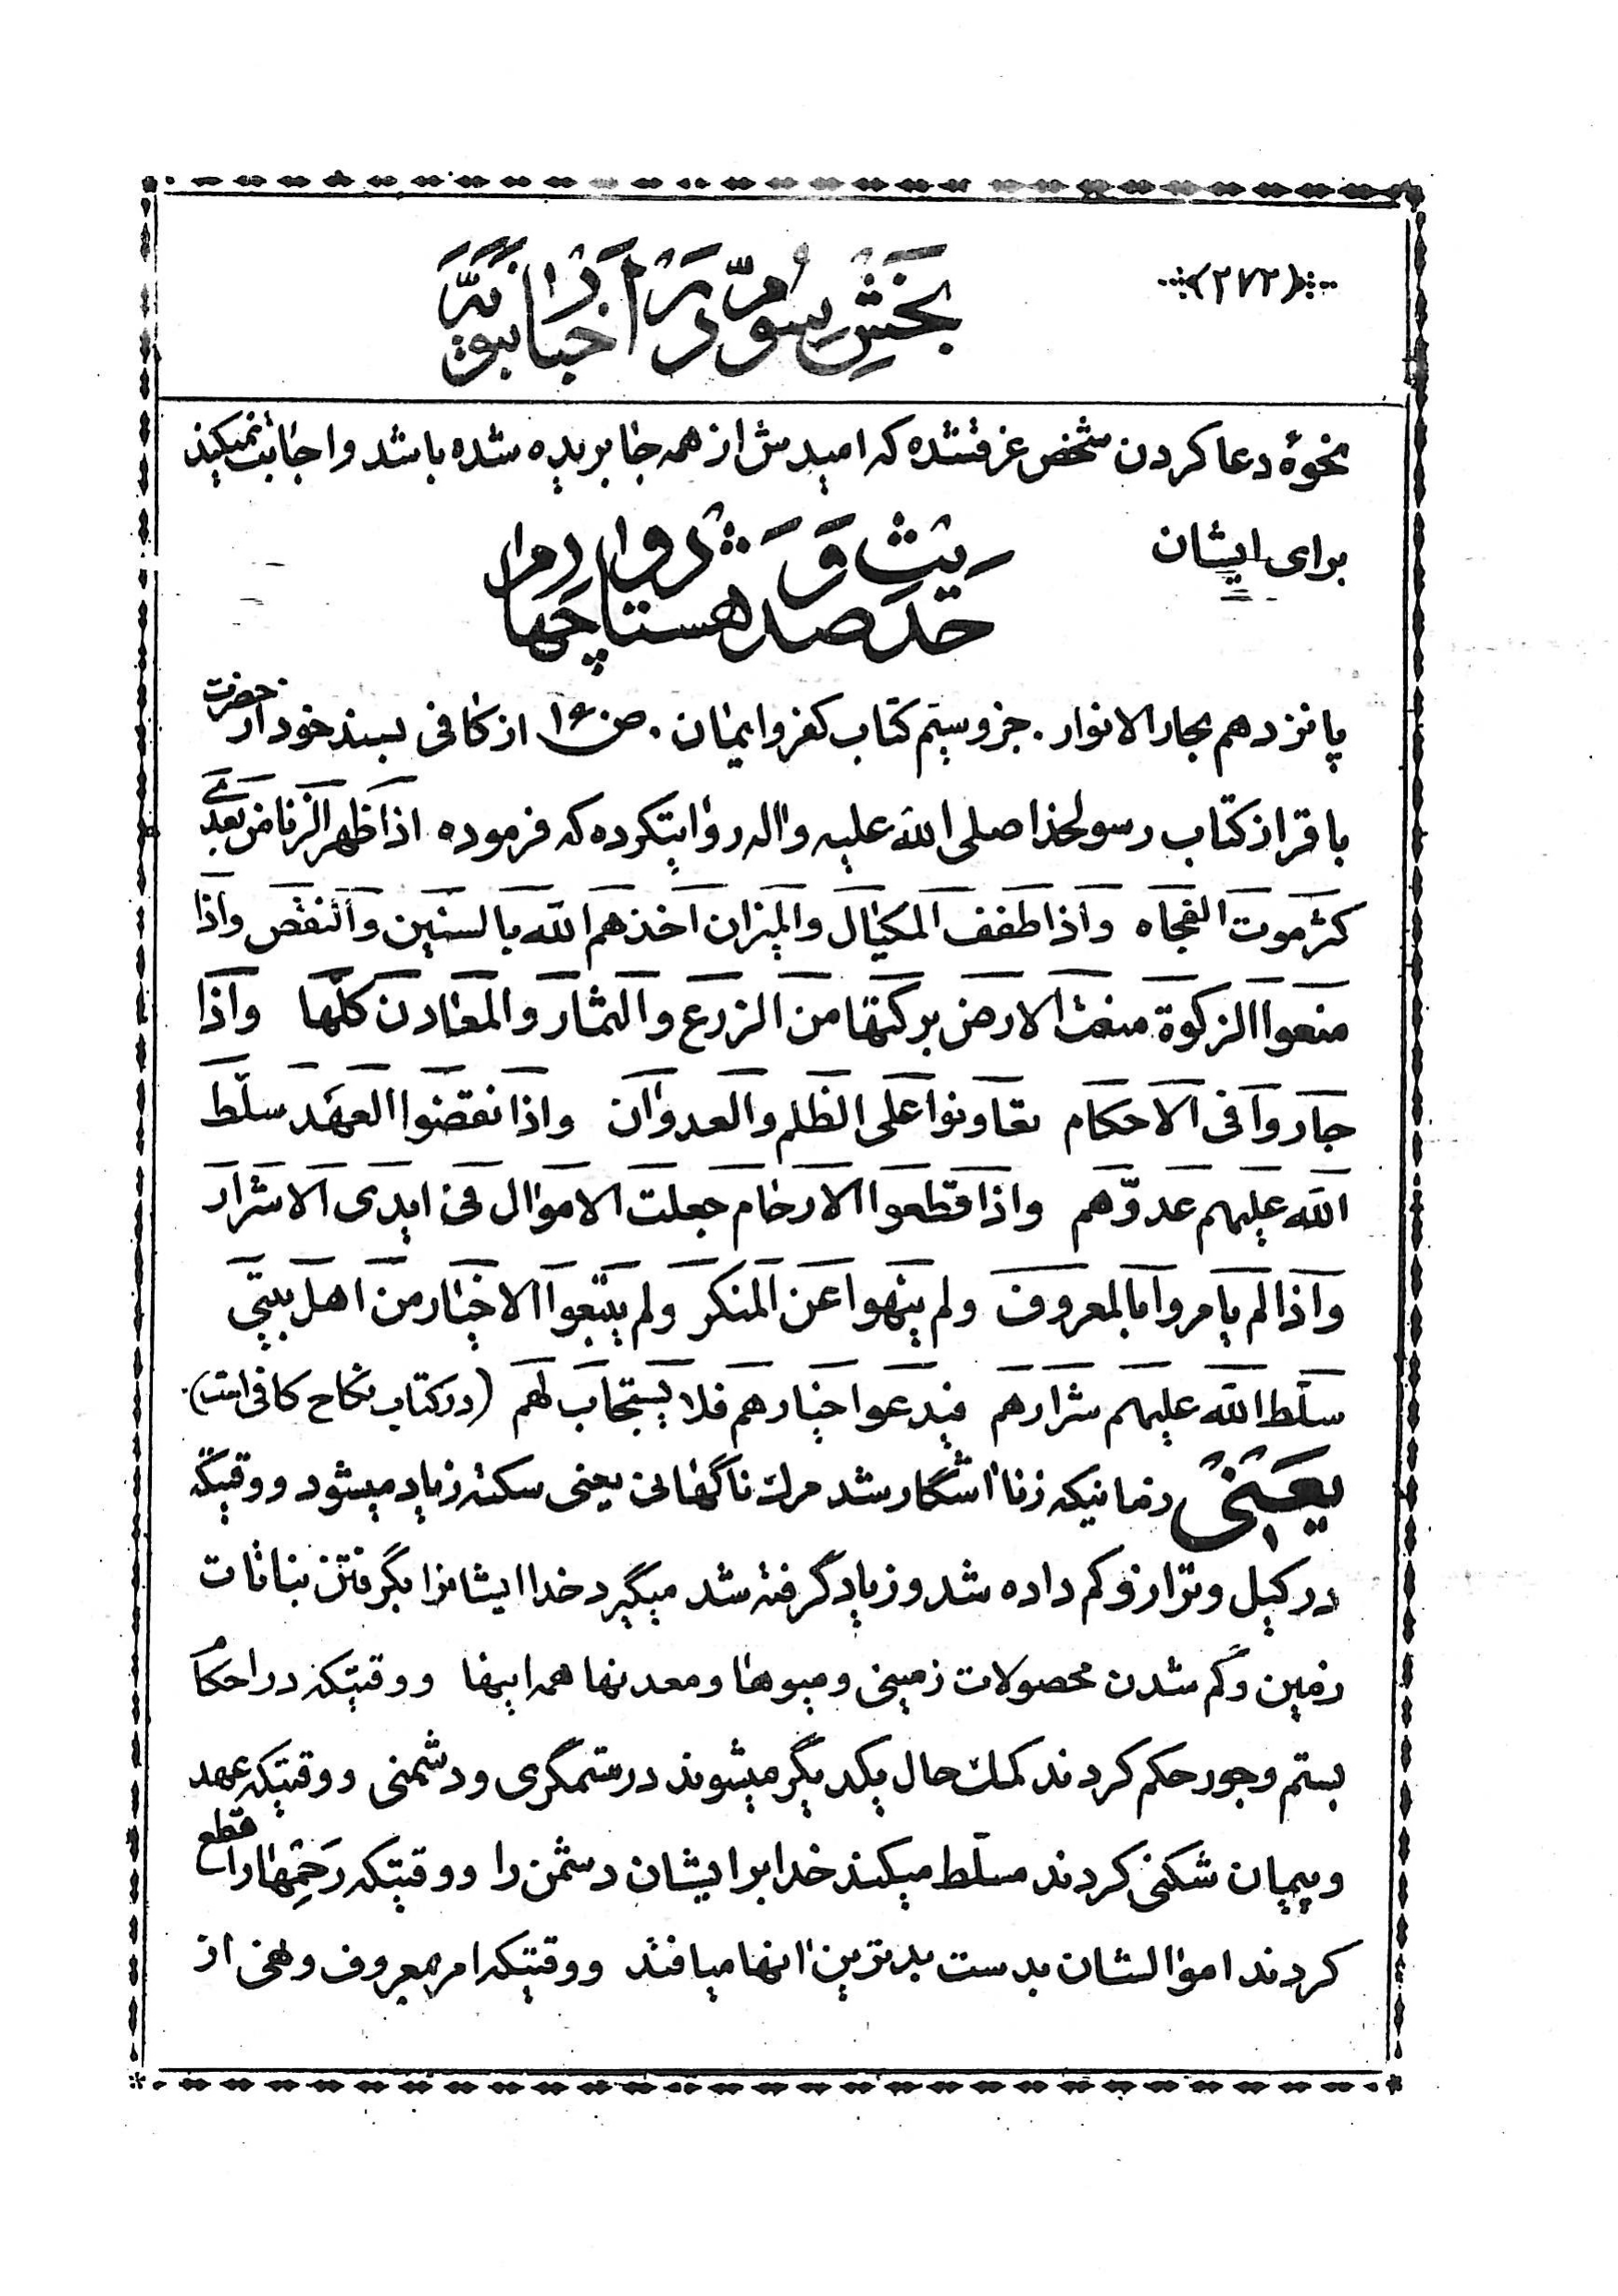 ﴿۲۷۲﴾
بخش سوم در اخبار نبویه
نحوهٔ دعا کردن شخص غرقشده که امیدش از همه جا بریده شده باشد و اجابت نمیکند
برای ایشان
حدیث صد و هشتاد و چهارم
پانزدهم بحار الانوار . جزو سیم کتاب کفر و ایمان . ص ۱۶ از کافی بسند خود از حضرت
باقر از کتاب رسولخدا صلی الله علیه و اله روایتکرده که فرموده اذا ظهر الزنا من بعدی
کثر موت الفجاه و اذا طفف المکیال والمیزان اخذهم الله بالسنین والنقص واذا
منعوا الزکوة منعت الارض برکتها من الزرع والثمار والمعادن کلّها واذا
جاروا فی الاحکام تعاونوا علی الظلم والعدوان واذا نقضوا العهد سلّط
الله علیهم عدوّهم واذا قطعوا الارحام جعلت الاموال فی ایدی الاشرار
واذا لم یامروا بالمعروف ولم ینهوا عن المنکر ولم یتّبعوا الاخیار من اهل بیتی
سلّط الله علیهم شرارهم فیدعوا خیارهم فلا یستجاب لهم (در کتاب نکاح کافی است)
یعنی زمانیکه زنا اشکار شد مرك ناگهانی یعنی سکته زیاد میشود و وقتیکه
در کیل و ترازو کم داده شد و زیاد گرفته شد میگیرد خدا ایشانرا بگرفتن نباتات
زمین و کم شدن محصولات زمینی و میوها و معدنها همه اینها و وقتیکه در احکام
بستم و جور حکم کردند کمك حال یکدیگر میشوند در ستمگری و دشمنی و وقتیکه عهد
و پیمان شکنی کردند مسلّط میکند خدا بر ایشان دشمن را و وقتیکه رحمها را قطع
کردند اموالشان بدست بدترین انها میافتد و وقتیکه امر بمعروف و نهی از